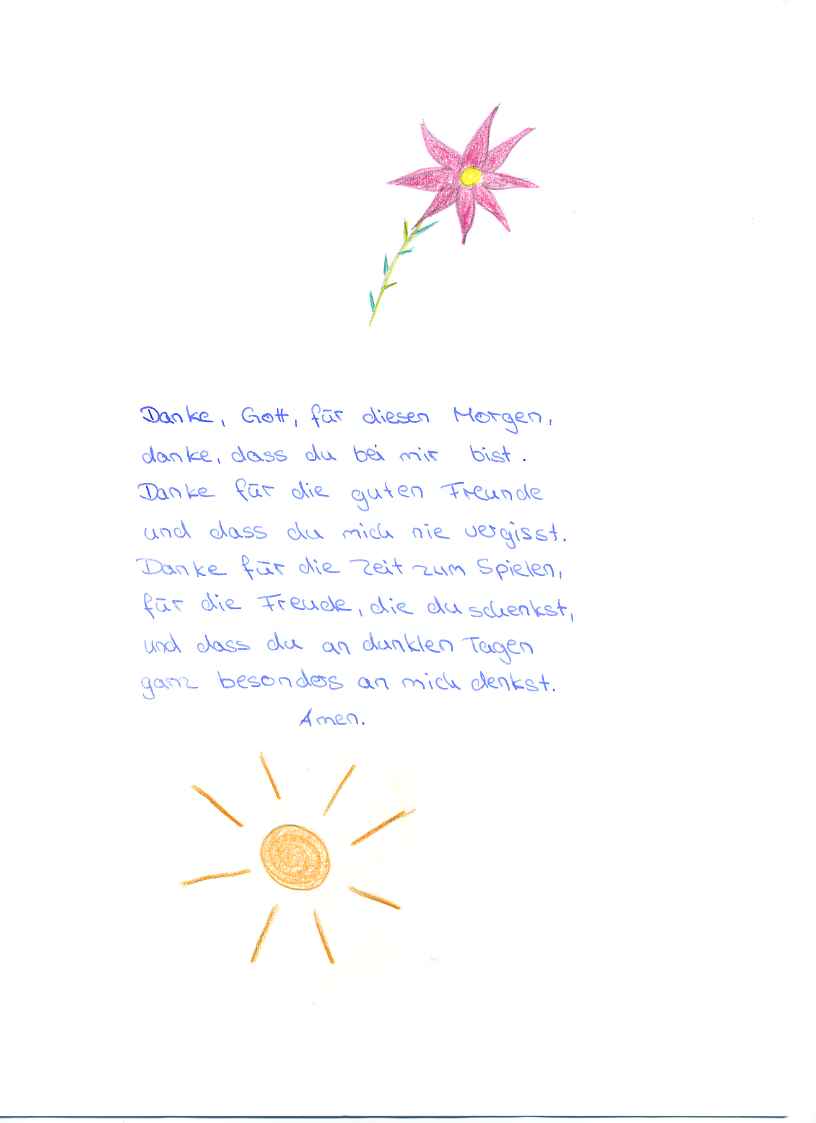 Danke, Gott, für diesen Morgen,
danke, dass du bei mir bist.
Danke für die guten Freunde
und dass du mich nie vergisst.
Danke für die Zeit zum Spielen,
für die Freude, die du schenkst,
und dass du an dunklen Tagen
ganz besonders an mich denkst.
Amen.